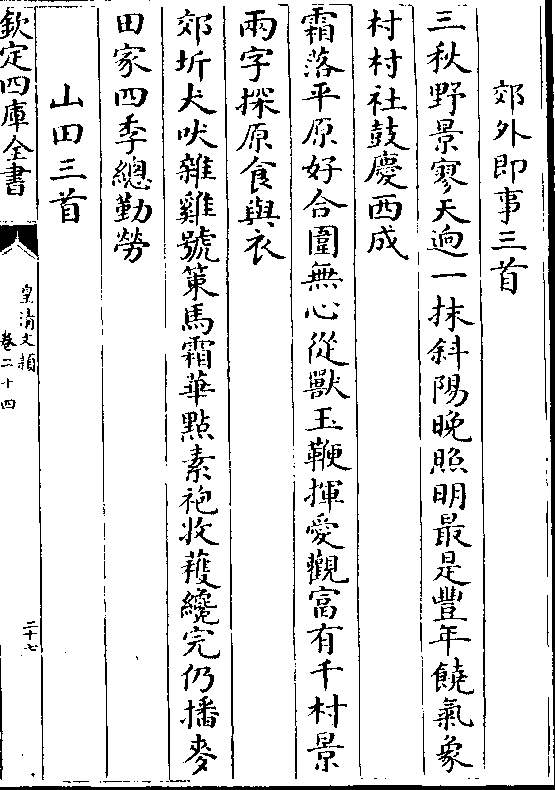 郊外即事三首
三秋野景寥天逈一抹斜陽晚照明最是豐年饒氣象
村村社鼓慶西成
霜落平原好合圍無心從獸玉鞭揮愛觀富有千村景
兩字探原食與衣
郊圻犬吠雜雞號策馬霜華點素袍收穫纔完仍播麥
田家四季總勤勞
山田三首
欽定四庫全書
皇清文穎
卷二十四
二十七